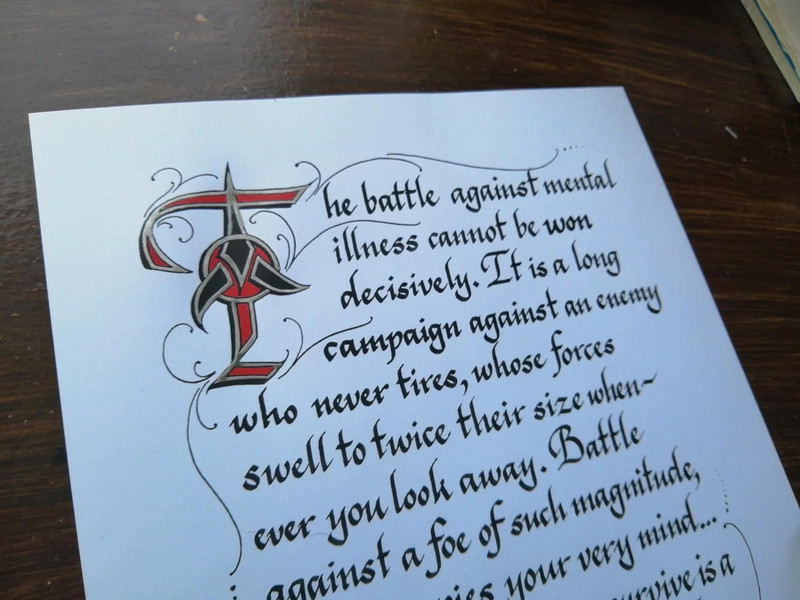 The battle against mental
illness cannot be won
decisively. It is a long
campaign against an enemy
who never tires, whose forces
swell to twice their size when~
ever you look away. Battle
against a foe of such magnitude,
your very mind...
survive is a